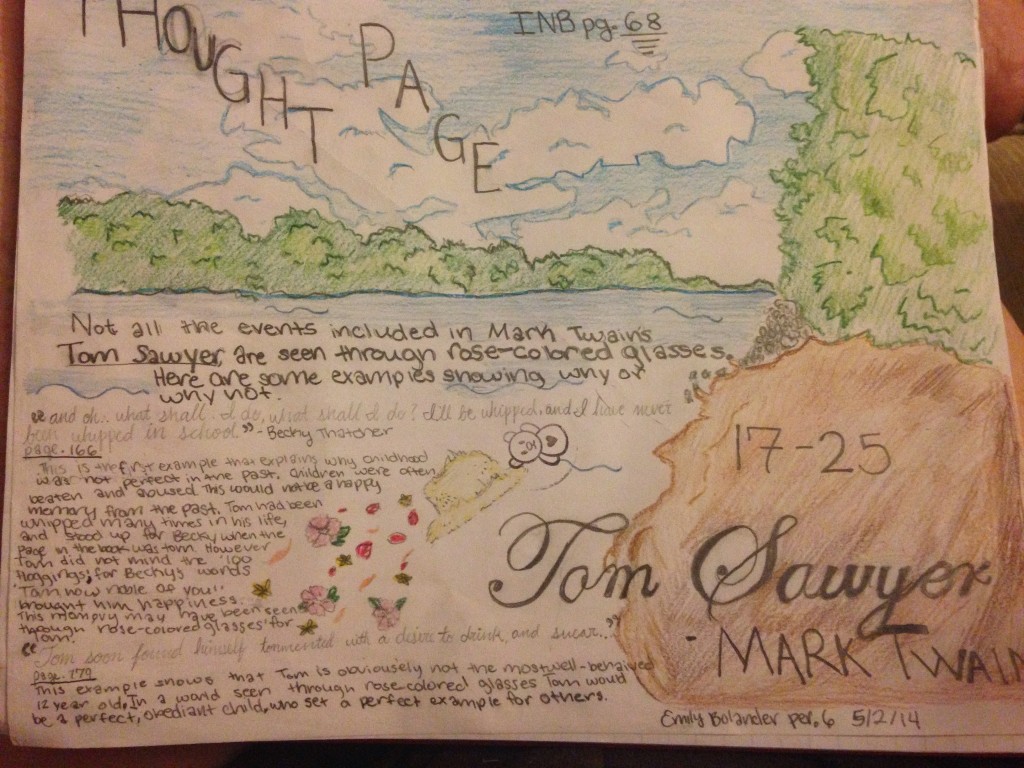 THOUGHT PAGE
INB pg. 68
Not all the events included in Mark Twain's
Tom Sawyer, are seen through rose-colored glasses.
Here are some examples showing why or
why not.
"and oh.. what shall I do, what shall I do? I'll be whipped, and I have never
been whipped in school" - Becky Thatcher
page. 166
This is the first example that explains why childhood
was not perfect in the past. Children were often
beaten and abused This would not be a happy
memory from the past. Tom had been
whipped many times in his life,
and stood up for Becky when the
page in the book was torn. However
Tom did not mind the '100
floggings', for Becky's words
'Tom how noble of you!'
brought him happiness.
This memory may have been seen
through rose-colored glasses for
Tom.
"Tom soon found himself tormented with a desire to drink, and swear.."
page. 179
This example shows that Tom is obviously not the most well-behaived
12 year old. In a world seen through rose-colored glasses Tom would
be a perfect, obediant child, who set a perfect example for others.
17-25
Tom Sawyer
- MARK TWAIN
Emily Bolander per. 6 5/2/14